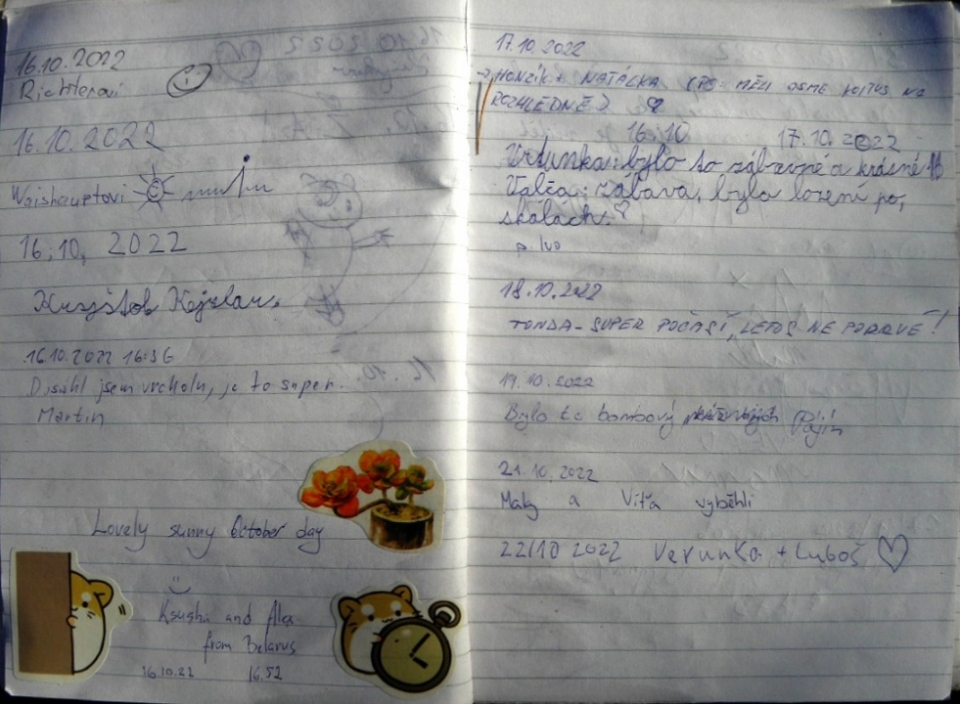 16.10.2022
Richterovi
16.10.2022
Waishauptovi
16.10. 2022
Kryštob Kejzlar.
16.10.2022 16:36
Disáhl jsem vrcholu, je to super.
Martin
Lovely sunny October day
Ksusha and Ales
from Belarus
16.10.22 16.52
17.10.2022
→ HONZÍK + NATÁLKA (PS: MĚLI JSME KOITUS NA
ROZHLEDNĚ)
16.10 17.10.2022
Vrbunka: bylo to zábavné a krásné
Valča: zábava, bylo lození po,
skálách.
p. Ivo
18.10.2022
TONDA - SUPER POČASÍ, LETOS NE PRVNÉ!
19.10.2022
Bylo to bombový Pájin
21.10.2022
Maty a Víťa vyběhli
22/10 2022 Verunka + Luboš